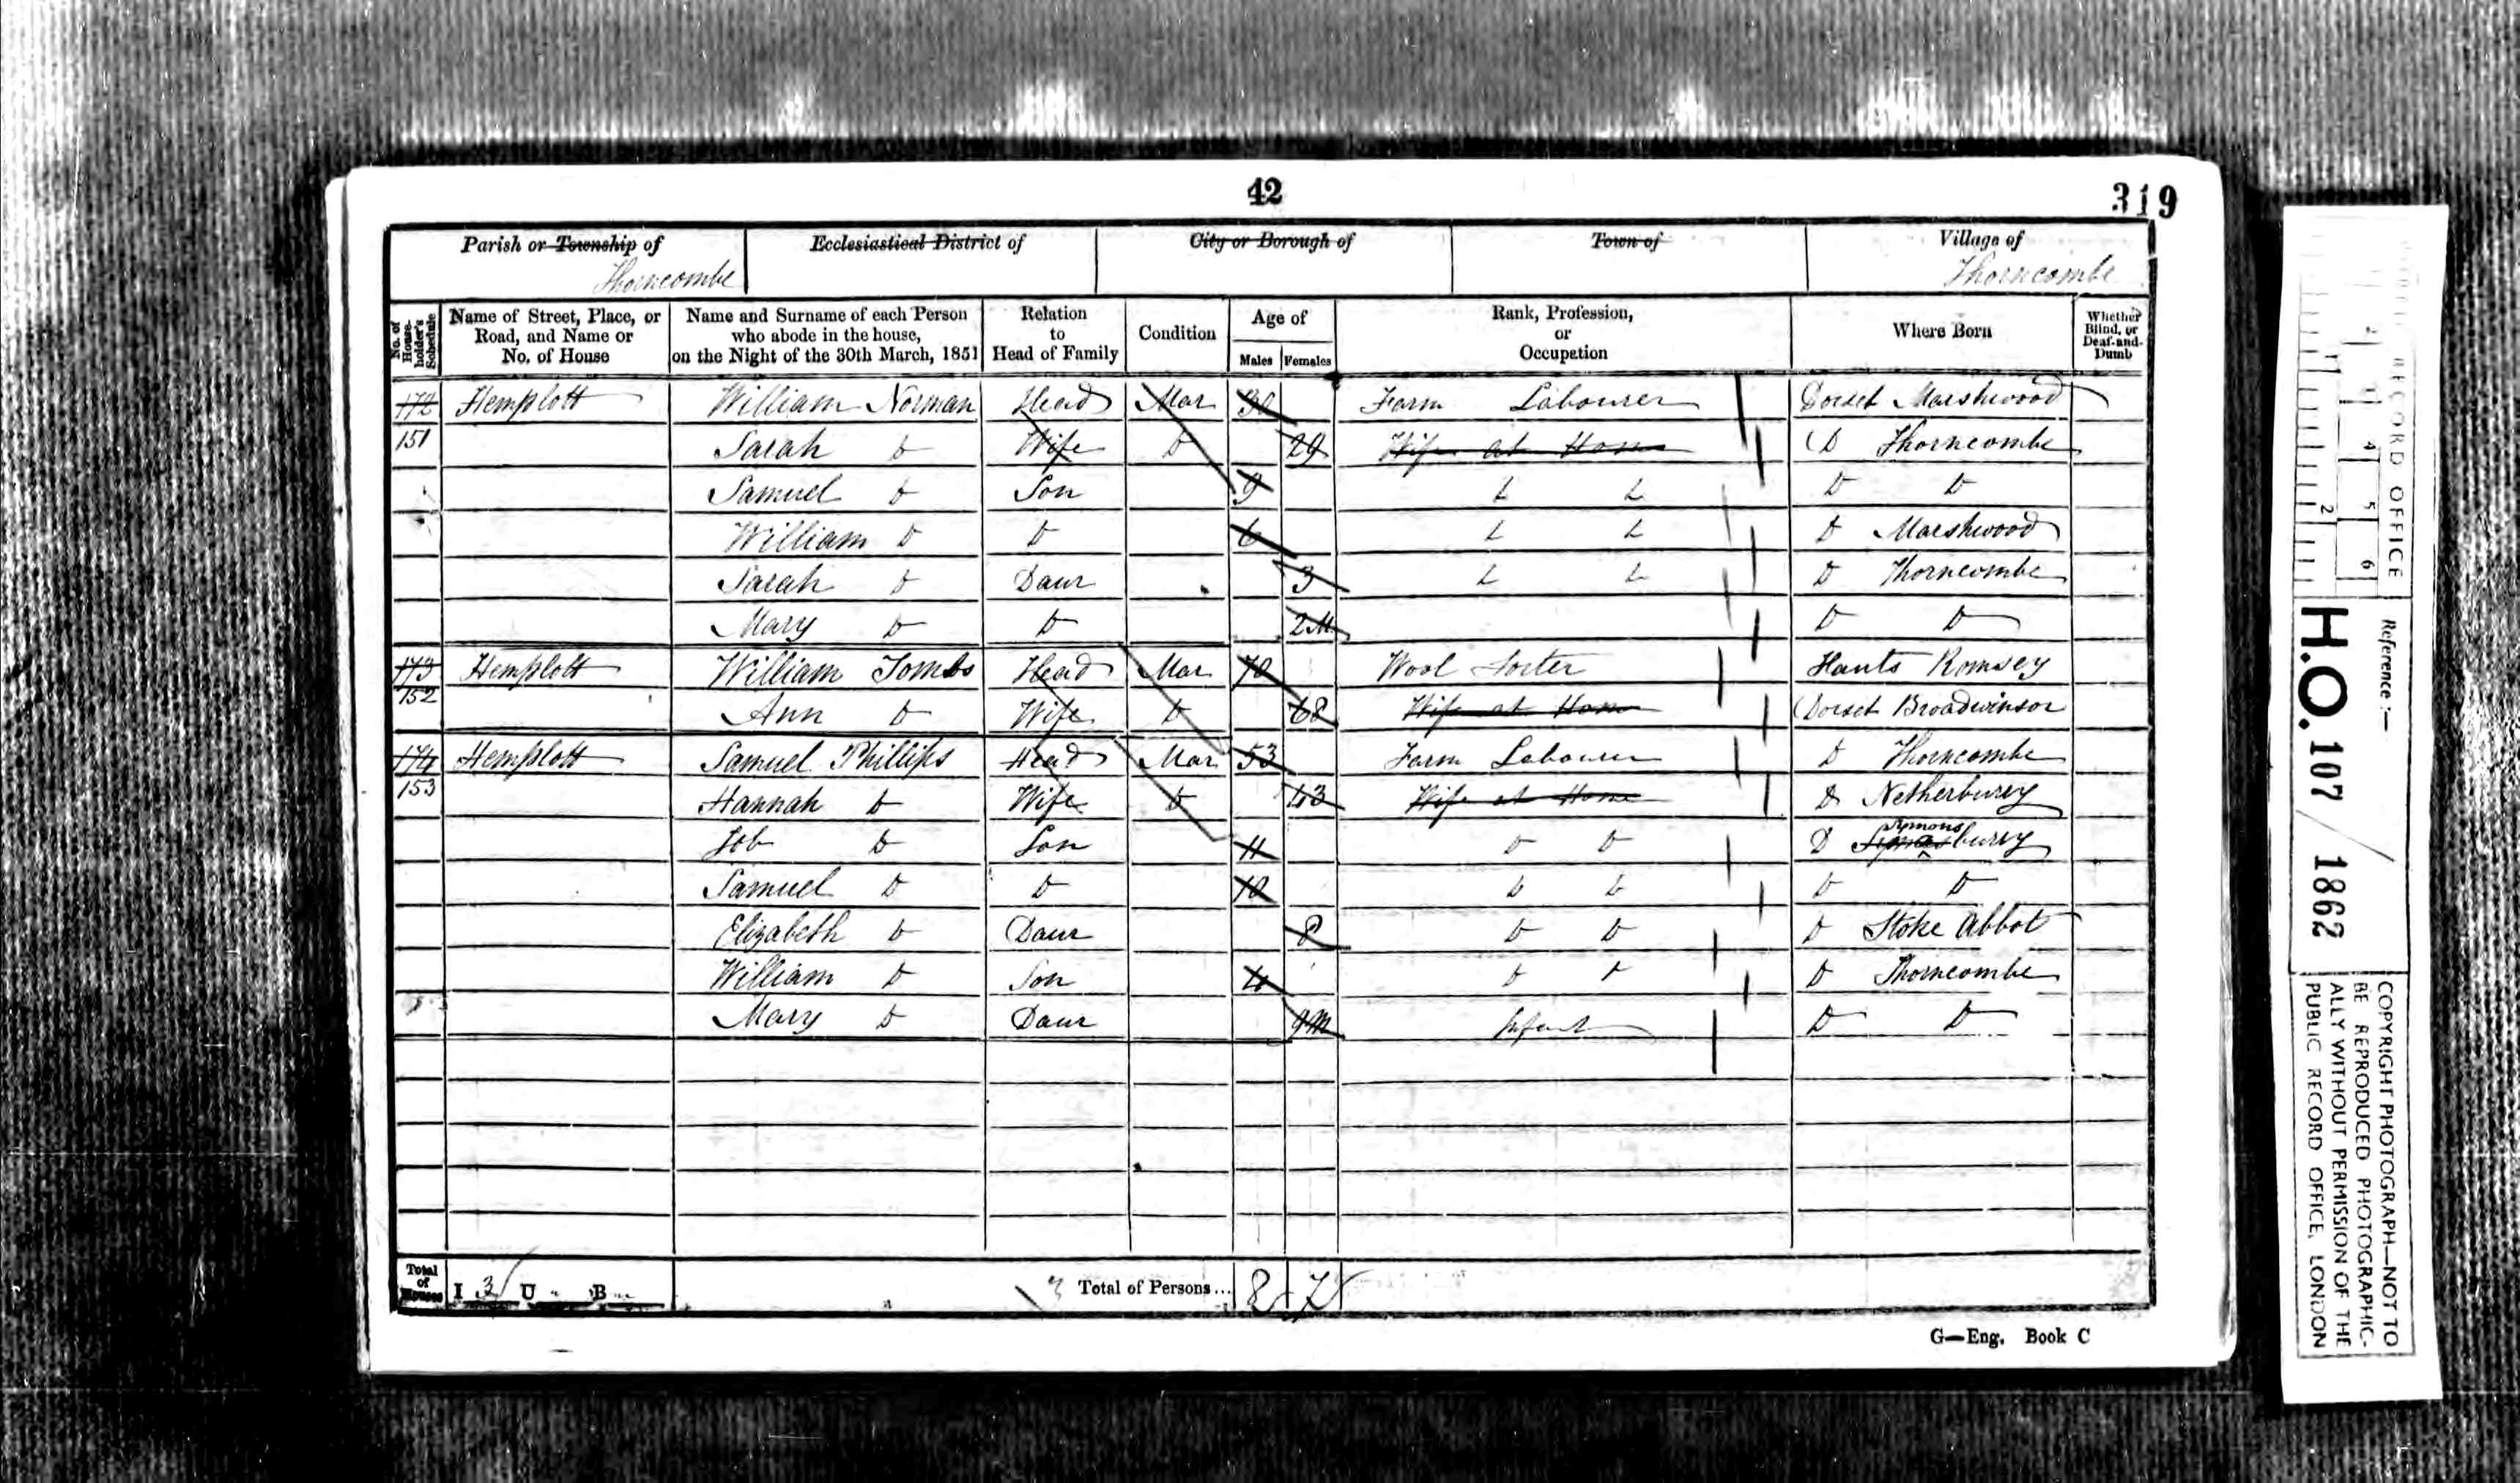 42
319
Parish or Township of
Thorncombe
Ecclesiastical District of
City or Borough of
Town of
Village of
Thorncombe
No. of House-holder's Schedule
Name of Street, Place, or Road, and Name or No. of House
Name and Surname of each Person who abode in the house, on the Night of the 30th March, 1851
Relation to Head of Family
Condition
Age of
Males Females
Rank, Profession, or Occupation
Where Born
Whether Blind, or Deaf-and-Dumb
172 Hemplott William Norman Head Mar 30 Farm Labourer Dorset Marshwood
151 Sarah D Wife D 29 Wife at Home D Thorncombe
Samuel D Son 9 D D D D
William D D 6 D D D Marshwood
Sarah D Daur 3 D D D Thorncombe
Mary D D 2M D D
173 Hemplott William Tombs Head Mar 70 Wool Sorter Hants Romsey
152 Ann D Wife D 68 Wife at Home Dorset Broadwinsor
174 Hemplott Samuel Phillips Head Mar 53 Farm Labourer D Thorncombe
153 Hannah D Wife D 43 Wife at Home D Netherburry
Job D Son 11 D D D Symonsburry
Samuel D D 10 D D D D
Elizabeth D Daur 8 D D D Stoke Abbot
William D Son 4 D D D Thorncombe
Mary D Daur 9M Infant D D
Total of Houses I 3 U B
3 Total of Persons... 8 7
G—Eng. Book C
RECORD OFFICE
1 2 4 5 6
Reference :—
H.O. 107 / 1862
COPYRIGHT PHOTOGRAPH—NOT TO
BE REPRODUCED PHOTOGRAPHIC-
ALLY WITHOUT PERMISSION OF THE
PUBLIC RECORD OFFICE, LONDON